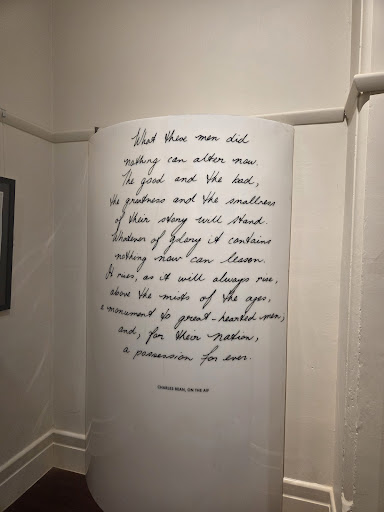 What these men did
nothing can alter now.
The good and the bad,
the greatness and the smallness
of their story will stand.
Whatever of glory it contains
nothing now can lessen.
It rises, as it will always rise,
above the mists of the ages,
a monument to great-hearted men,
and, for their nation,
a possession for ever.
CHARLES BEAN, ON THE AIF